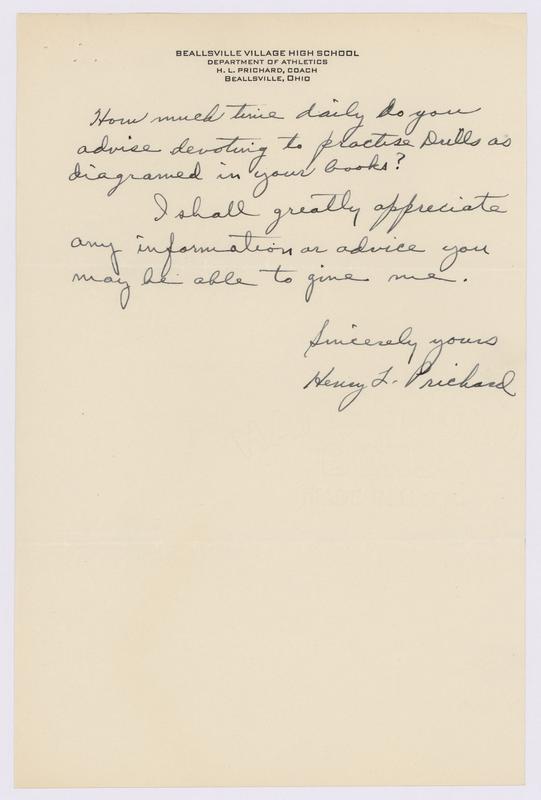 BEALLSVILLE VILLAGE HIGH SCHOOL
DEPARTMENT OF ATHLETICS
H. L. PRICHARD, COACH
BEALLSVILLE, OHIO
How much time daily do you
advise devoting to practise Drills as
diagramed in your books?
I shall greatly appreciate
any information or advice you
may be able to give me.
Sincerely yours
Henry L. Prichard